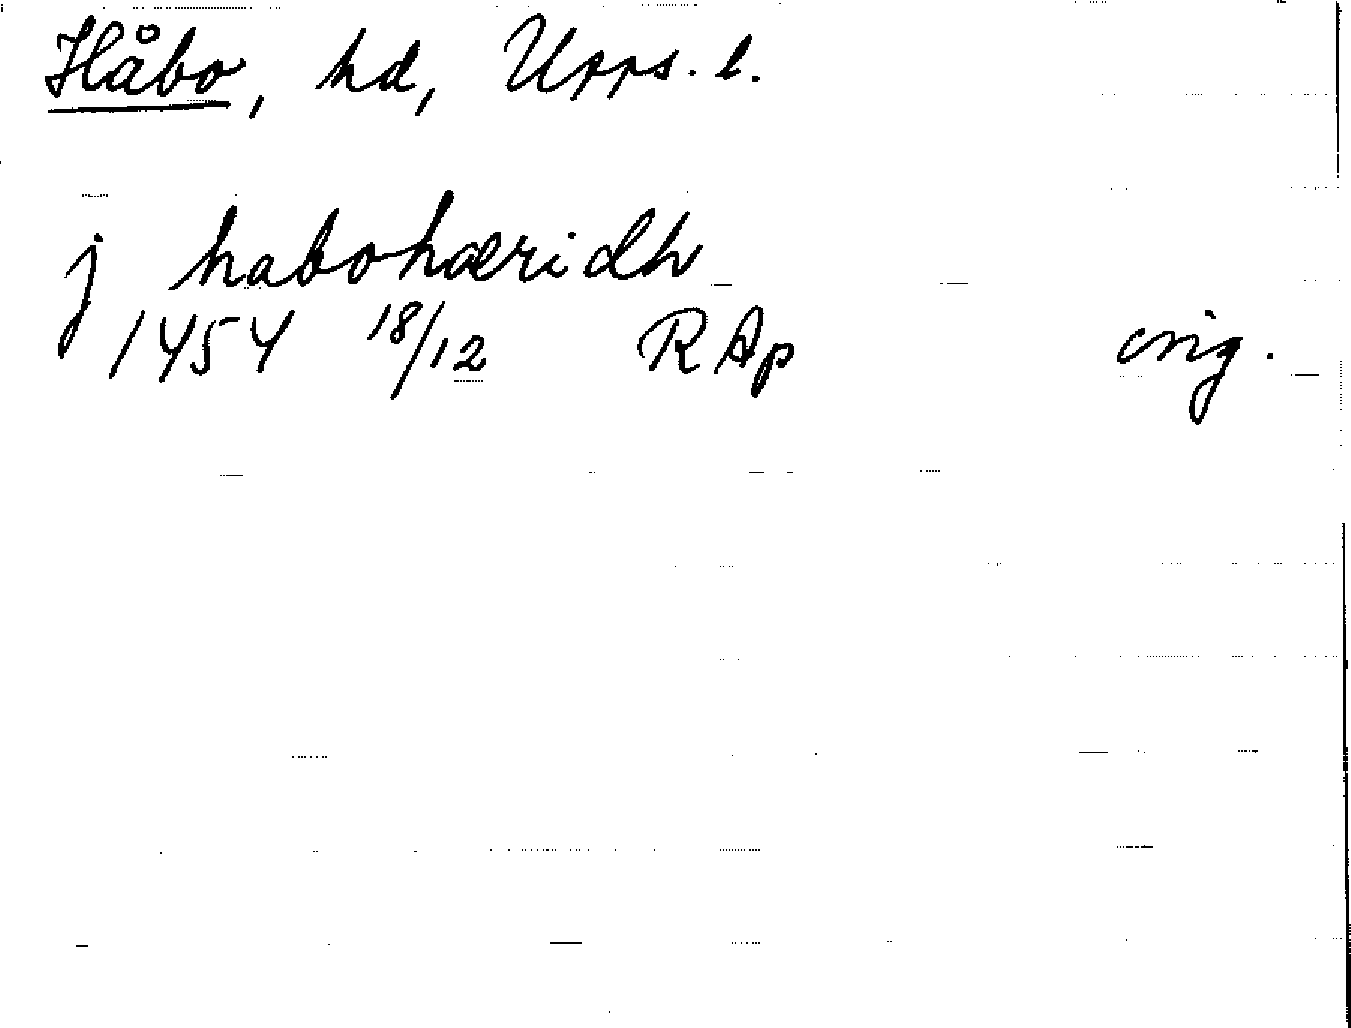 Håbo, hd, Upps. l.
j habohæridh
1454 18/12 RAp orig.